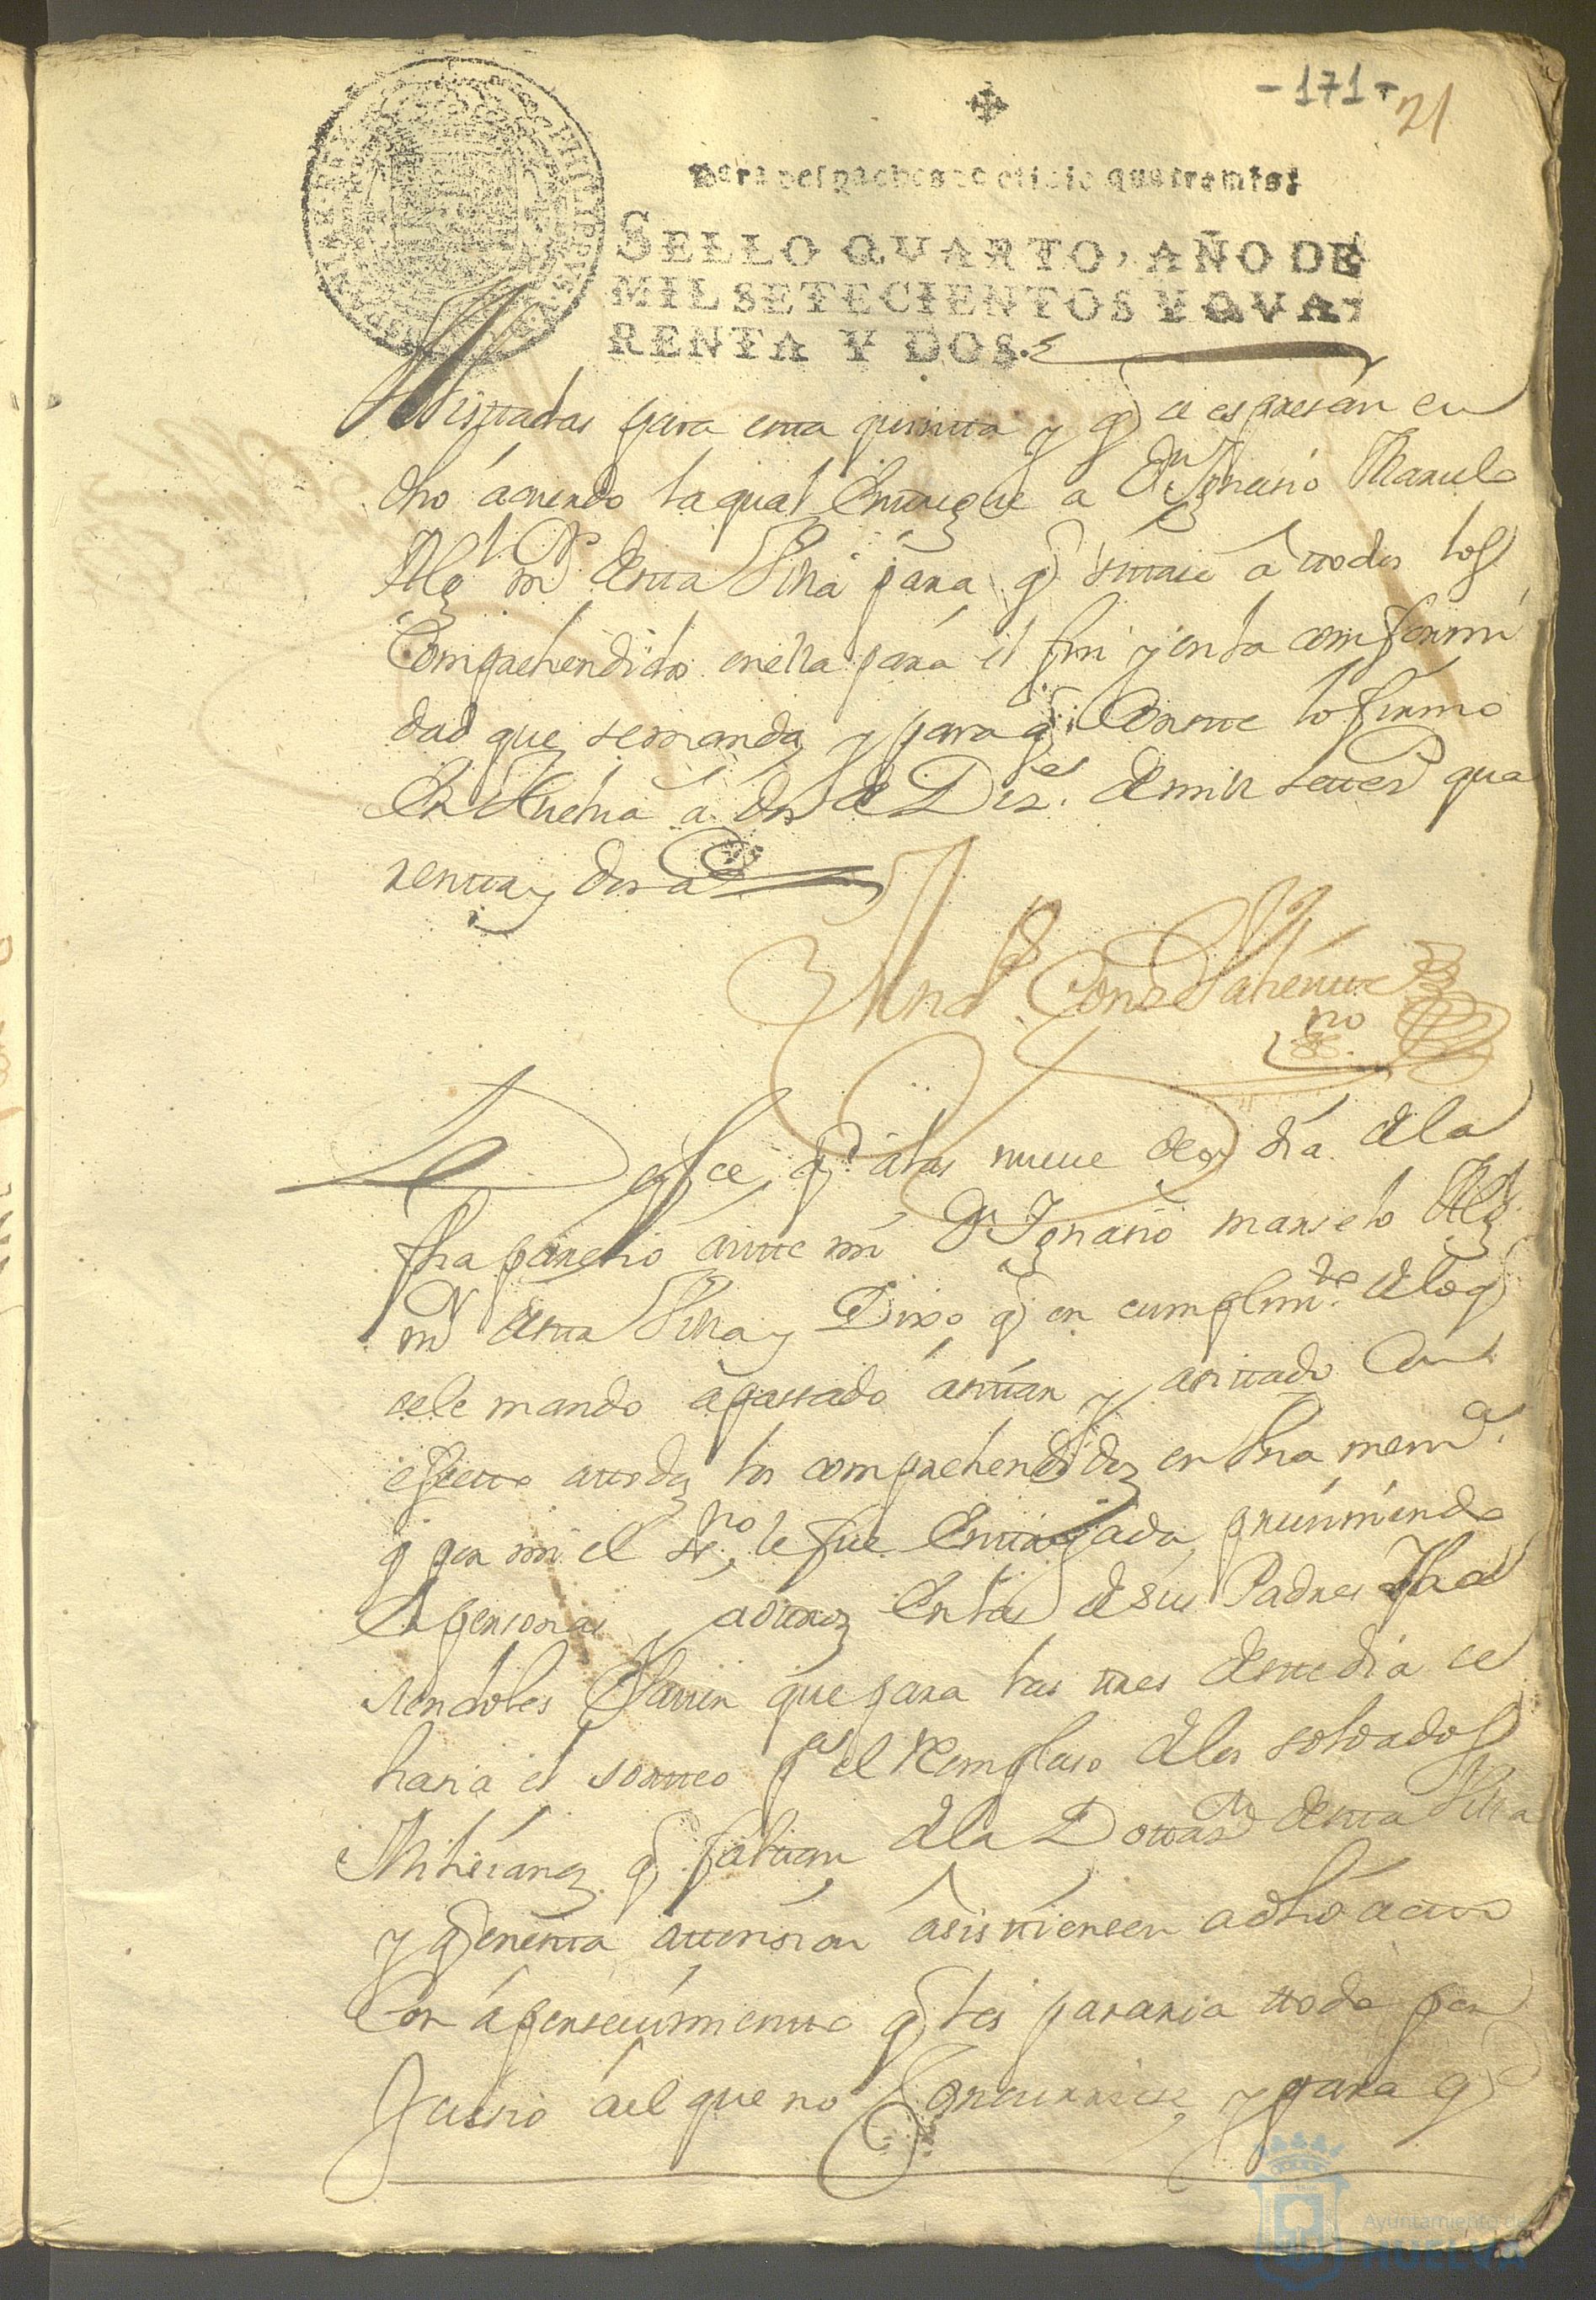 -171-
21
Para despachos de oficio quatro mrs.
SELLO QVARTO, AÑO DE
MIL SETECIENTOS Y QVA-
RENTA Y DOS.
Alistadas para esta quinta y q se espresan en
dho acuerdo la qual entregue a Dn Ignasio Marcelo
Algl mr desta Villa para q sitase a ttodos los
Comprehendidos en ella para el fin y en la conformi
dad que se manda, y para q Conste lo firmo
En Huelva a dos de Dizre. de mill settesos qua
rentta y dos as
Doy fee, q a las nueve deeste dia de la
fha paresio antte mi Dn Ignasio marcelo Algl
mr desta Villa y Dixo q en cumplimto. de lo q
se le mando a passado a sittar y a sittado Con
efectto a ttodos los comprehendidos en dha memra.
q por mi el esno, le fue Enttregada, prebiniendo
En personas, y a ottros En las de sus Padres Ha
siendoles Saver que para las ttres deste dia se
haria el sortteo pa el Remplaso de los soldados
Milisianos q faltan de la Dottasn desta Villa
y q en esta attension asisttiesen a dho actto
Con apersevimientto q les pararia ttodo per
Juisio a el que no Concurriese, y para q
Ayuntamiento de
HUELVA